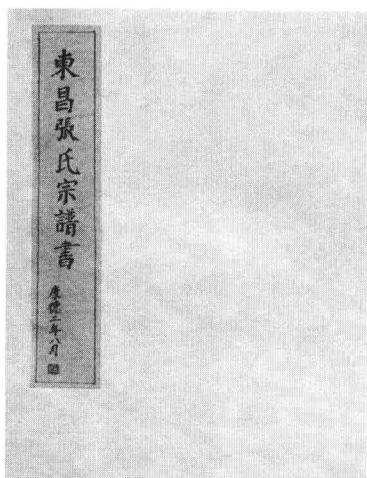 東昌張氏宗譜書
康德二年八月